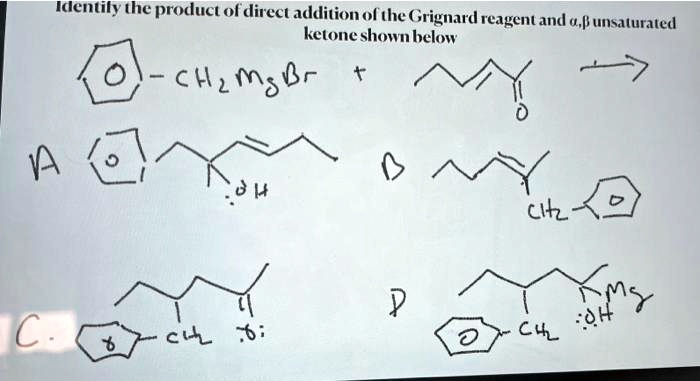 Identify the product of direct addition of the Grignard reagent and α,β unsaturated
ketone shown below
-CH2MgBr +
O
A
:ÖH
B
CH2
C.
CH2 :Ö:
D
Mg
:ÖH
CH2